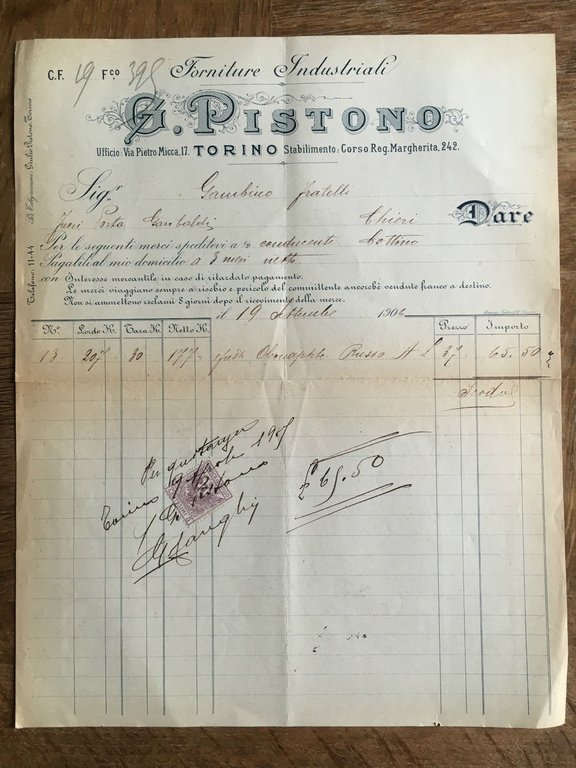 C.F. 19 Fco 395 Forniture Industriali
G. PISTONO
Ufficio: Via Pietro Micca, 17. TORINO Stabilimento: Corso Reg. Margherita, 242.
Per Telegrammi: Giulio Pistono Torino
Telefono: 11-44
Sigr Gambino fratelli
fuori Porta Garibaldi Chieri Dare
Per le seguenti merci speditevi a 1/2 conducente Cottino
Pagabili al mio domicilio a 3 mesi netto
con Interesse mercantile in caso di ritardato pagamento.
Le merci viaggiano sempre a rischio e pericolo del committente ancorchè vendute franco a destino.
Non si ammettono reclami 8 giorni dopo il ricevimento della merce.
il 19 Settembre 1906
No. Lordo K. Tara K. Netto K. Prezzo Importo
13 207 30 177 Russo A L 37 65.50
Per quietanza
Torino 9
G. Pistono
£ 65.50